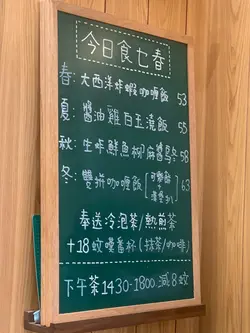 今日食乜春
春: 大西洋炸蝦咖喱飯 53
夏: 醬油雞白玉燒飯 55
秋: 生炸鮮魚柳麻醬烏冬 58
冬: 雙拼咖喱飯 63
奉送冷泡茶/熱煎茶
+18蚊嘆番杯(抹茶/咖啡)
下午茶1430-1800 減8蚊